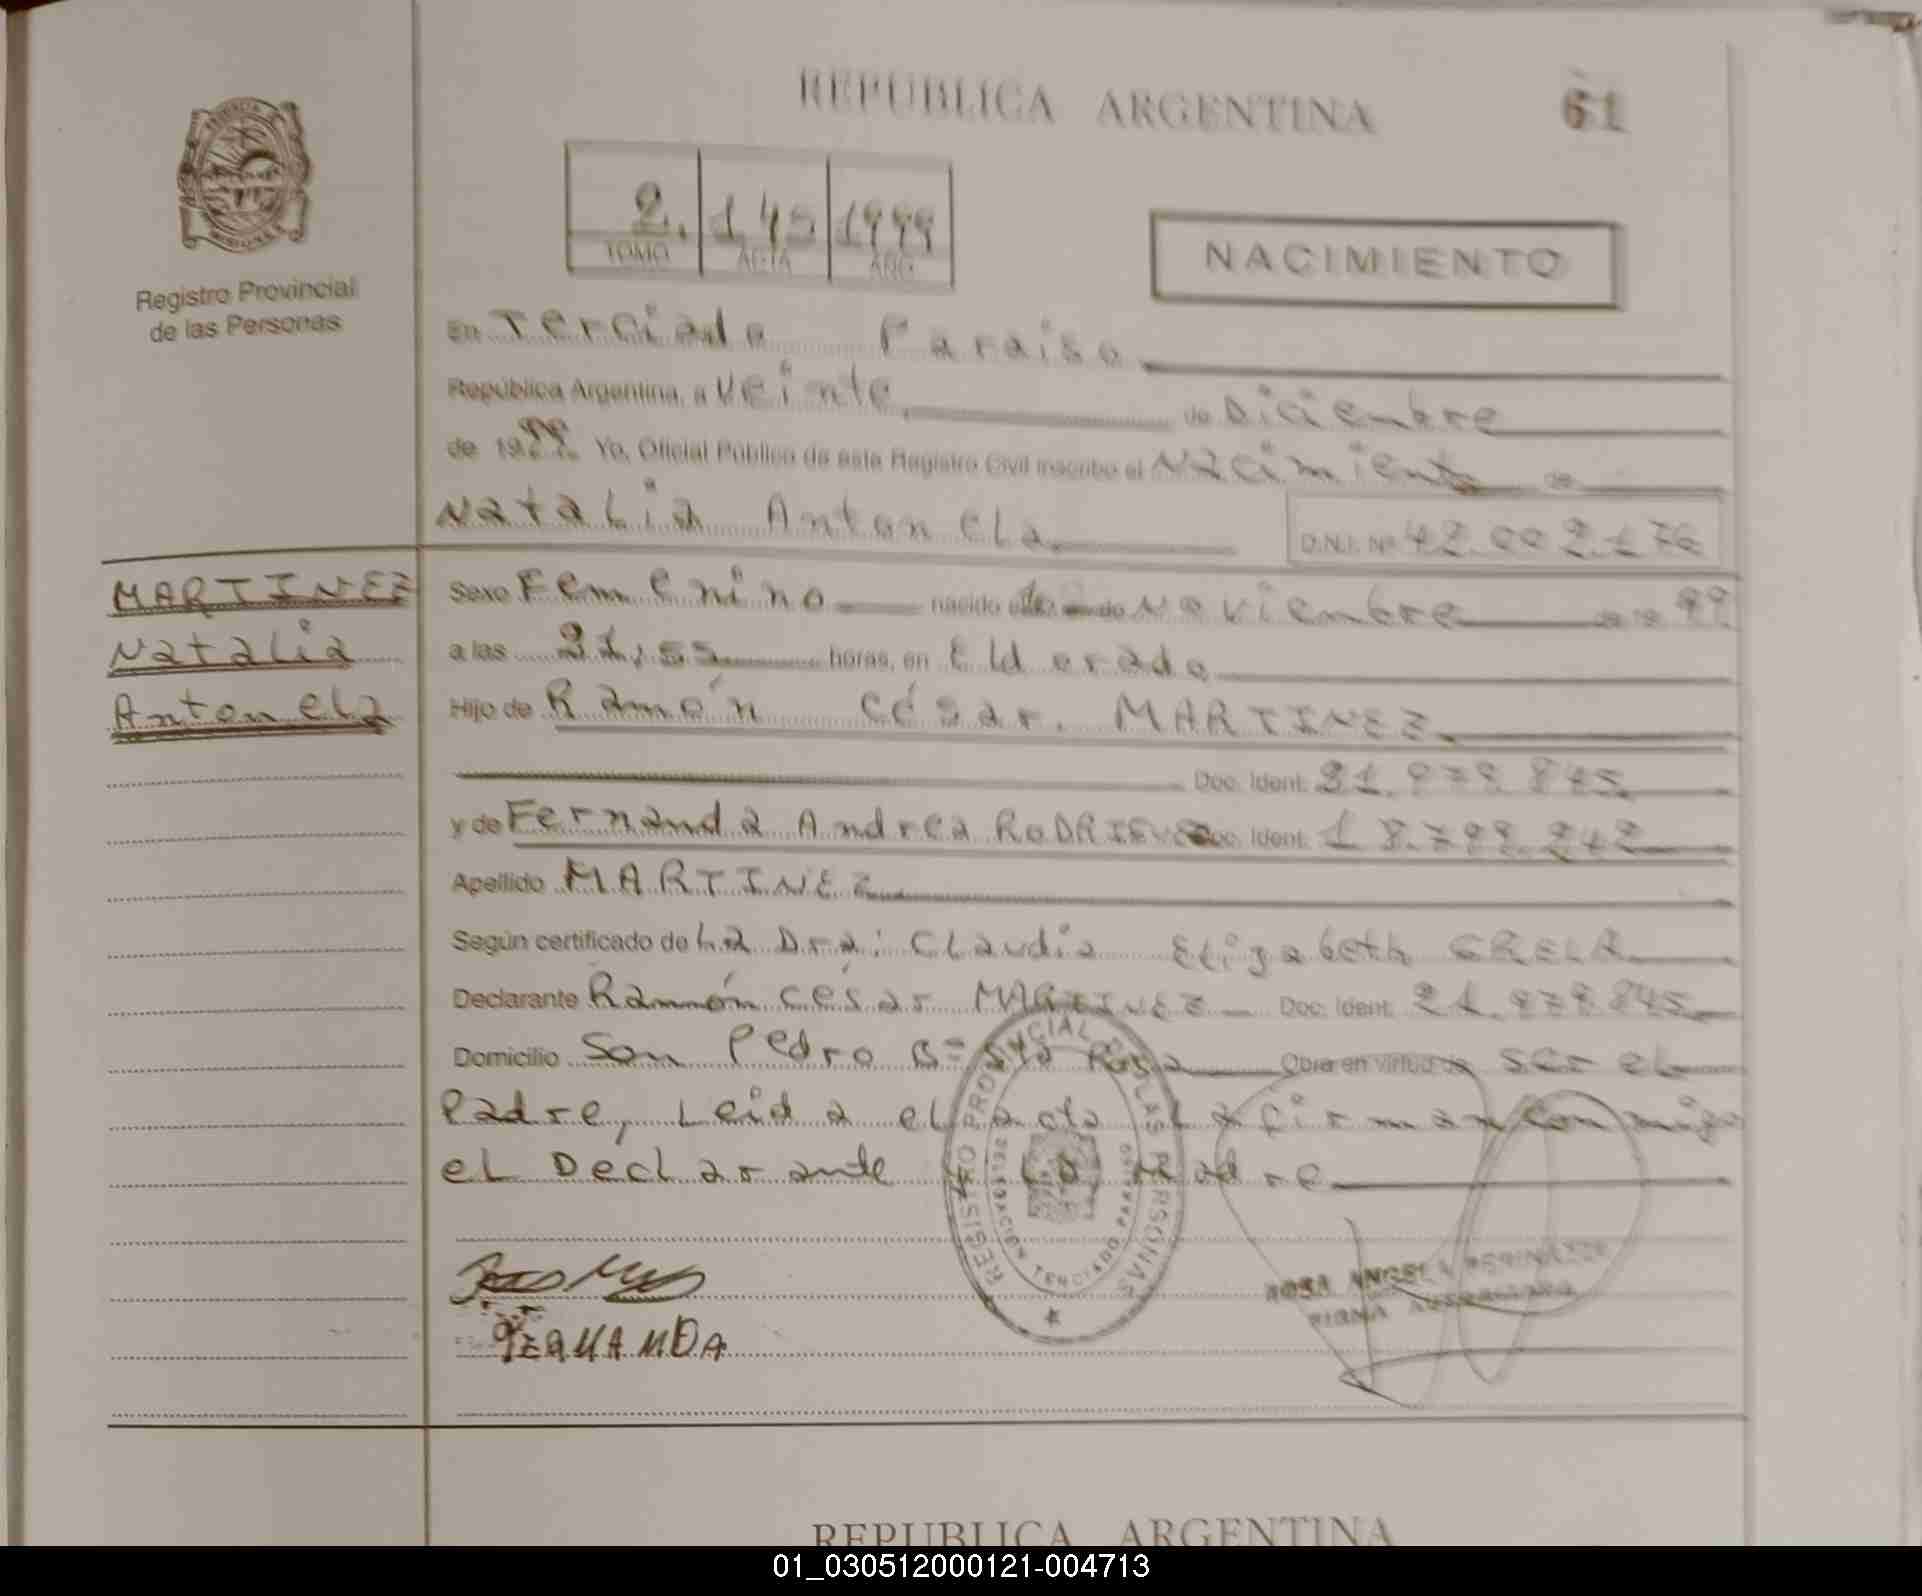 REPUBLICA ARGENTINA
61
2. 145 1999
TOMO ACTA AÑO
NACIMIENTO
Registro Provincial
de las Personas
En Terciado Paraiso
República Argentina, a Veinte de Diciembre
de 1999. Yo, Oficial Público de este Registro Civil inscribo el Nacimiento de
Natalia Antonela D.N.I. Nº 42.002.176
MARTINEZ
Natalia
Antonela
Sexo Femenino nacido de Noviembre de 19 99
a las 21,55 horas, en Eldorado
Hijo de Ramón César. MARTINEZ
Doc. Ident. 21.979.845
y de Fernanda Andrea RODRIGUEZ Doc. Ident. 18.799.242
Apellido MARTINEZ
Según certificado de La Dra: Claudia Elizabeth GRELA
Declarante Ramón César MARTINEZ Doc. Ident. 21.979.845
Domicilio San Pedro Bº Sta Rosa Obra en virtud de ser el
Padre, Leida el acta La firman conmigo
el Declarante y La Madre
REGISTRO PROVINCIAL DE LAS PERSONAS
DELEGACION TERCIADO PARAISO
ROSA ANGELA
FIRMA AUTORIZADA
FERNANDA
REPUBLICA ARGENTINA
01_030512000121-004713